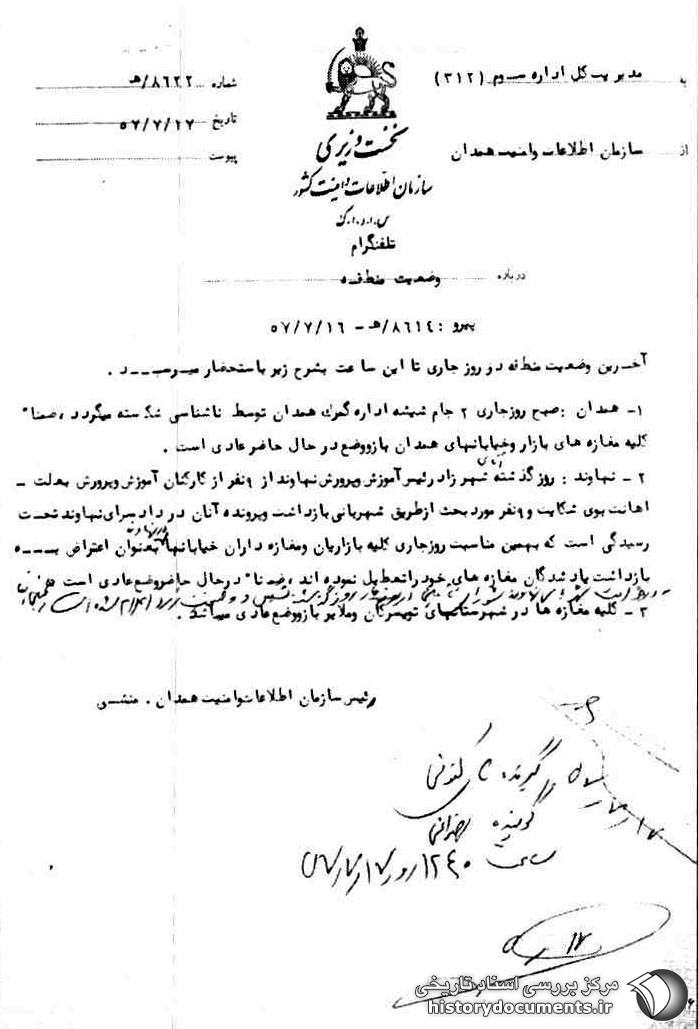 به مدیریت کل اداره سوم (۳۱۲)
از سازمان اطلاعات وامنیت همدان
شماره ۸۶۲۲/هـ
تاریخ ۵۷/۷/۱۷
پیوست
نخست وزیری
سازمان اطلاعات و امنیت کشور
س.ا.و.ا.ک
تلفنگرام
درباره وضعیت منطقه
پیرو : ۸۶۱۴/هـ - ۵۷/۷/۱۶
آخرین وضعیت منطقه در روز جاری تا این ساعت بشرح زیر باستحضار میرسد .
۱- همدان : صبح روزجاری ۲ جام شیشه اداره گمرك همدان توسط ناشناسی شکسته میگردد ، ضمنا"
کلیه مغازه های بازار وخیابانهای همدان بازووضع در حال حاضرعادی است .
۲- نهاوند : روز گذشته آقای شهرزاد رئیس آموزش وپرورش نهاوند از ۹نفر از کارکنان آموزش وپرورش بعلت
اهانت بوی شکایت و ۹نفر مورد بحث ازطریق شهربانی بازداشت وپرونده آنان در دادسرای نهاوند تحت
رسیدگی است که بهمین مناسبت روزجاری کلیه بازاریان ومغازه داران خیابانها بعنوان اعتراض به
بازداشت یاد شدگان مغازه های خود را تعطیل نموده اند ، ضمنا" درحال حاضروضع عادی است
۳- کلیه مغازه ها در شهرستانهای تویسرکان وملایر بازووضع عادی میباشد .
رئیس سازمان اطلاعات وامنیت همدان . منشی
گیرنده
گوینده
ساعت ۱۲۴۰ روز
مرکز بررسی اسناد تاریخی
historydocuments.ir